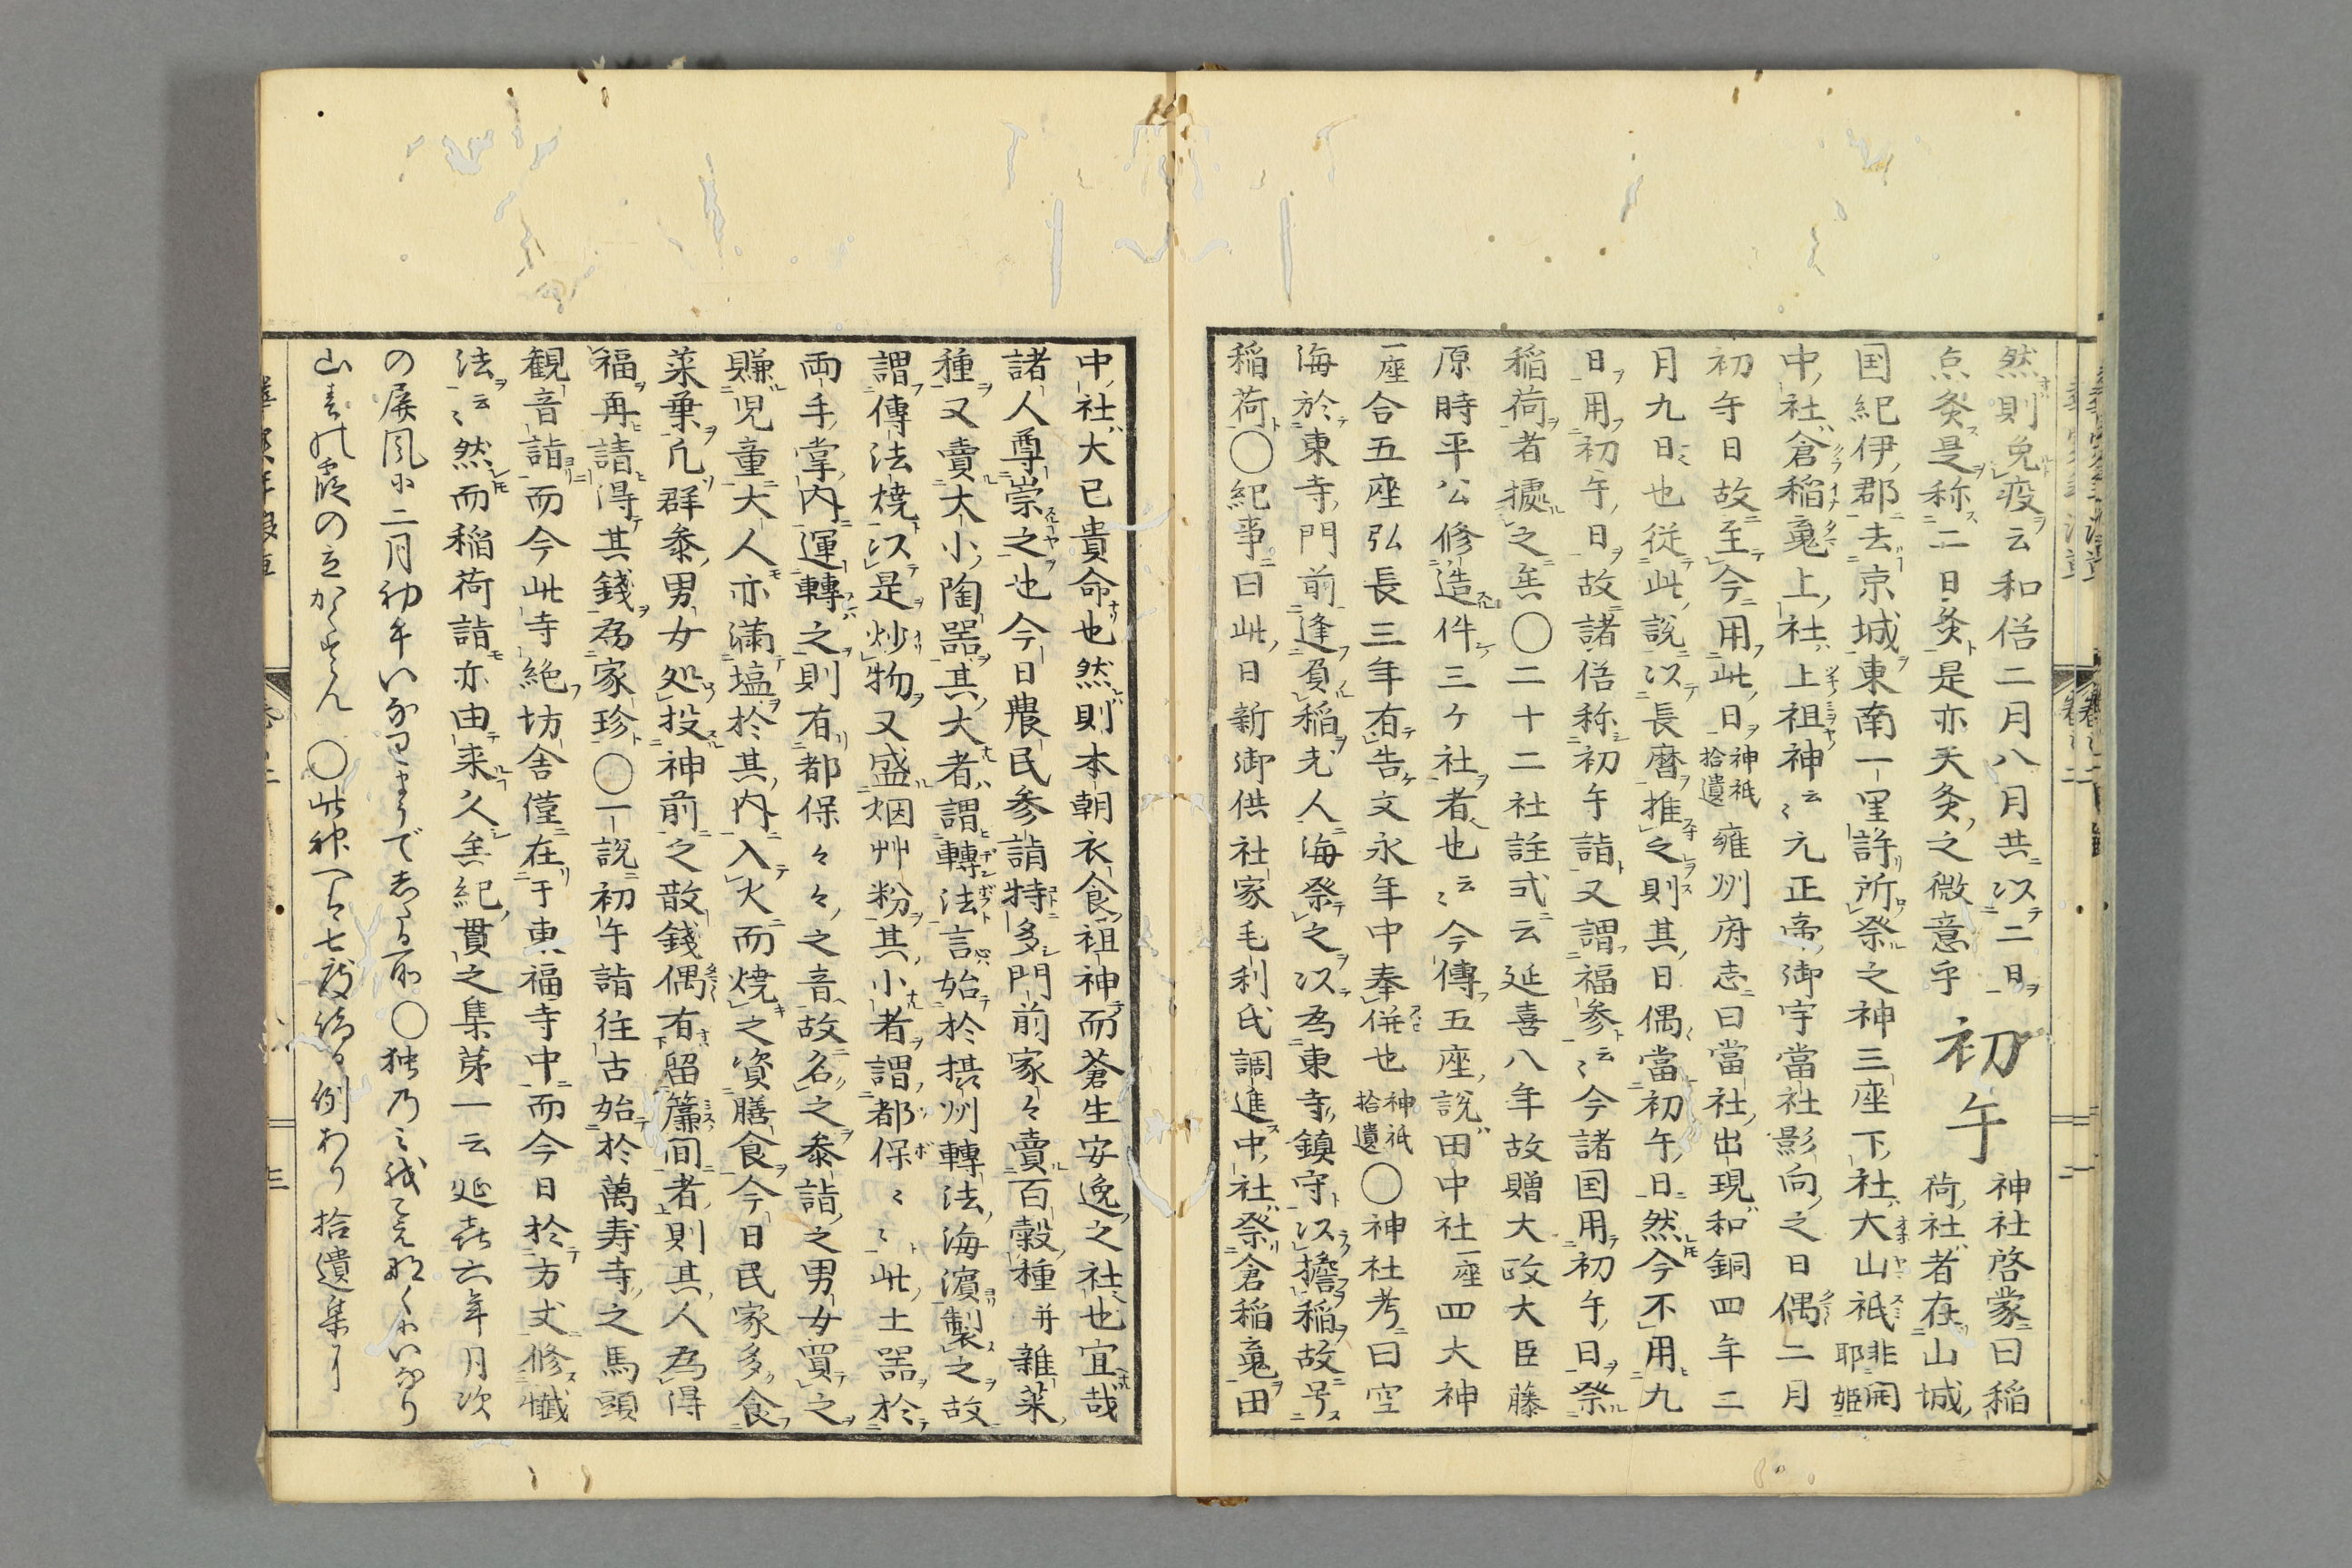 然則免疫云和俗二月八月共以二日
点灸是称二日灸是亦天灸之微意乎
初午
神社啓蒙曰稲
荷社者在山城
国紀伊郡去京城東南一里許所祭之神三座下社大山祇非開耶姫
中社倉稲䰠上社上祖神云〻元正帝御宇當社影向之日偶二月
初午日故至今用此日神祇拾遺雍州府志曰當社出現和銅四年二
月九日也従此説以長暦推之則其日偶當初午日然今不用九
日用初午日故諸俗称初午詣又謂福参云〻今諸国用初午日祭
稲荷者據之矣〇二十二社註式云延喜八年故贈大政大臣藤
原時平公修造件三ケ社者也云〻今傳五座説田中社一座四大神
一座合五座弘長三年有告文永年中奉併也神祇拾遺〇神社考曰空
海於東寺門前逢負稲老人海祭之以為東寺鎮守以擔稲故号
稲荷〇紀事曰此日新御供社家毛利氏調進中社祭倉稲䰠田
中社大已貴命也然則本朝衣食祖神而蒼生安逸之社也宜哉
諸人尊崇之也今日農民参詣特多門前家々賣百穀種并雜菜
種又賣大小陶噐其大者謂轉法言始於摂州轉法海濵製之故
謂傳法焼以是炒物又盛烟艸粉其小者謂都保〻〻此土噐於
両手掌内運轉之則有都保々々之音故名之参詣之男女買之
賺児童大人亦滿塩於其内入火而焼之資膳食今日民家多食
菜葉凡群参男女処投神前之散錢偶有留簾間者則其人為得
福再請得其錢為家珍〇一説初午詣往古始於萬寿寺之馬頭
観音詣而今此寺絶坊舎僅在于東福寺中而今日於方丈修懺
法云〻然而稲荷詣亦由来久矣紀貫之集第一云延喜六年月次
の屏風に二月初午いなりまうでしたる所〇独のみ我こえなくにいなり
山春の霞の立かくすらん　〇此神へは七度詣る例あり拾遺集に